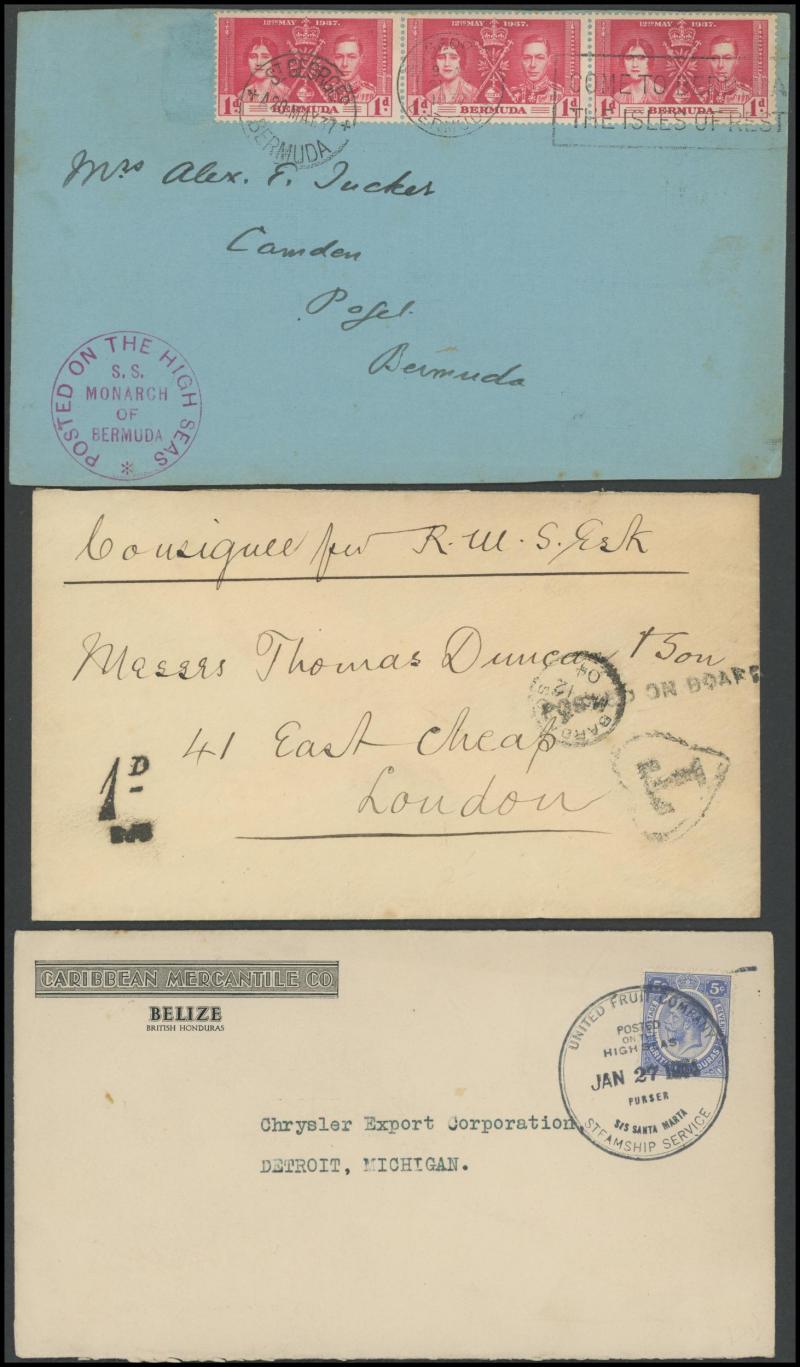 12TH MAY 1937. 12TH MAY 1937. 12TH MAY 1937.
1d BERMUDA 1d 1d BERMUDA 1d 1d BERMUDA 1d
ST. GEORGES
BERMUDA
COME TO BERMUDA
THE ISLES OF REST
Mrs Alex. F. Tucker
Camden
Paget
Bermuda
POSTED ON THE HIGH SEAS
S. S.
MONARCH
OF
BERMUDA
Consignee per R.M.S. Esk
Messrs Thomas Duncan & Son
POSTED ON BOARD
41 East Cheap
London
1D
T
CARIBBEAN MERCANTILE CO.
BELIZE
BRITISH HONDURAS
5c 5c
UNITED FRUIT COMPANY
POSTED
ON THE
HIGH SEAS
JAN 27
PURSER
S/S SANTA MARTA
STEAMSHIP SERVICE
Chrysler Export Corporation,
DETROIT, MICHIGAN.